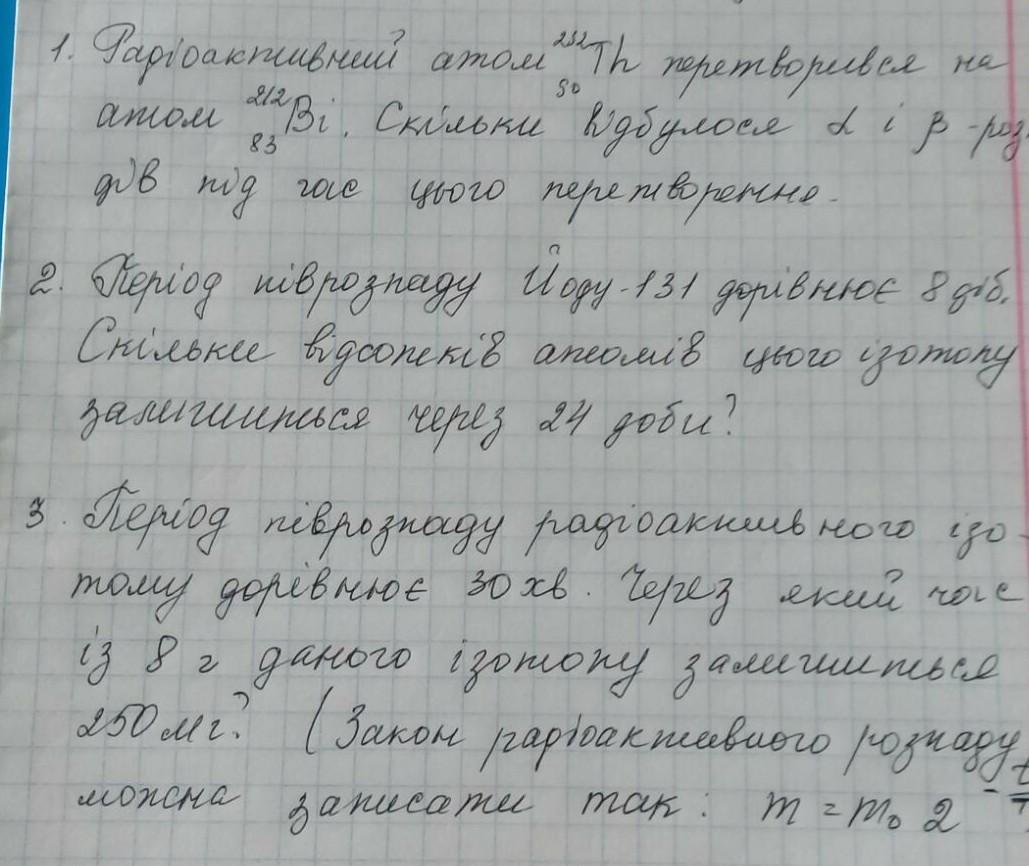 1. Радіоактивний атом ²³²₉₀Th перетворився на
атом ²¹²₈₃Bi. Скільки відбулося α і β -роз
дів під час цього перетворення.
2. Період піврозпаду Йоду-131 дорівнює 8 діб.
Скільки відсотків атомів цього ізотопу
залишиться через 24 доби?
3. Період піврозпаду радіоактивного ізо-
тому дорівнює 30 хв. Через який час
із 8 г даного ізотопу залишиться
250 мг? (Закон радіоактивного розпаду
можна записати так: m = m₀ 2^-t/T